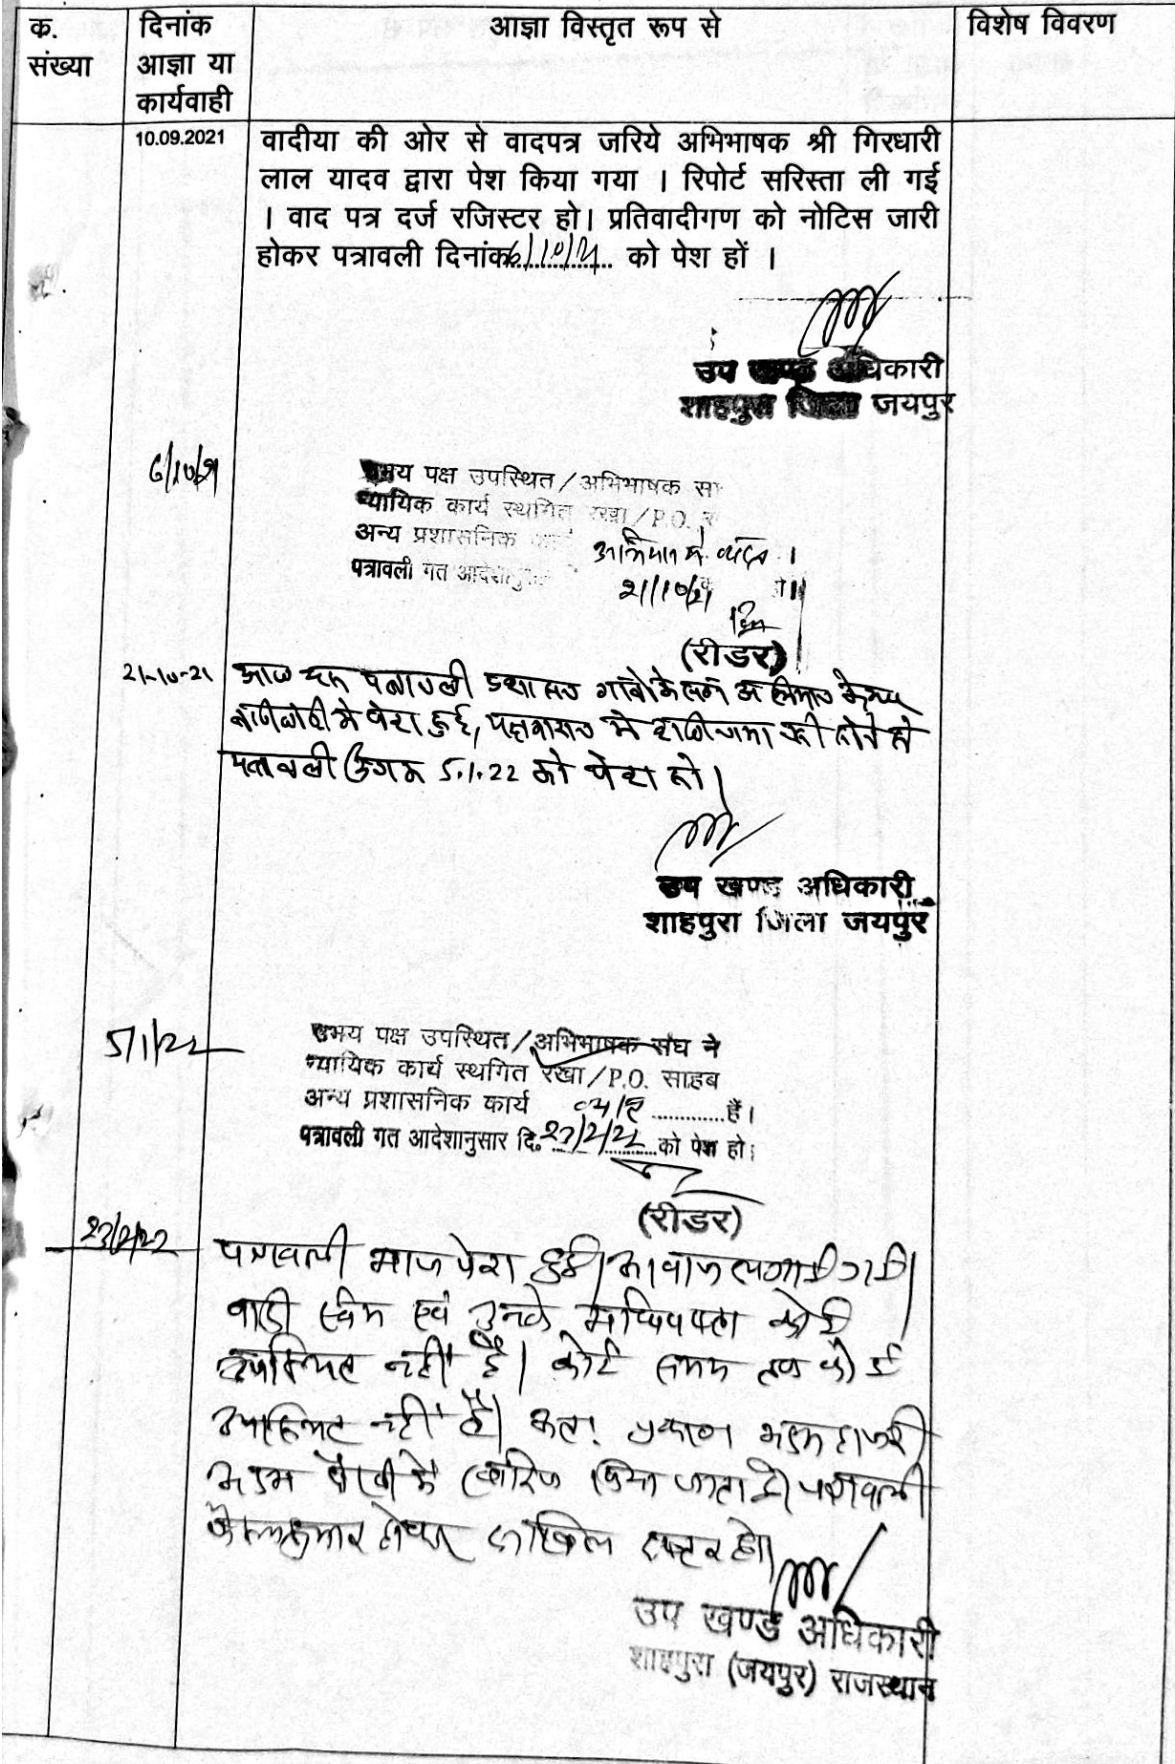 क. संख्या
दिनांक आज्ञा या कार्यवाही
आज्ञा विस्तृत रूप से
विशेष विवरण
10.09.2021
वादीया की ओर से वादपत्र जरिये अभिभाषक श्री गिरधारी
लाल यादव द्वारा पेश किया गया । रिपोर्ट सरिस्ता ली गई
। वाद पत्र दर्ज रजिस्टर हो। प्रतिवादीगण को नोटिस जारी
होकर पत्रावली दिनांक 6/10/21 को पेश हों ।
उप खण्ड अधिकारी
शाहपुरा जिला जयपुर
6/10/21
उभय पक्ष उपस्थित/अभिभाषक
न्यायिक कार्य स्थगित रखा/P.O.
अन्य प्रशासनिक अभियान में व्यस्त ।
पत्रावली गत आदेशानुसार 21/10/21
(रीडर)
21-10-21
आज यह पत्रावली प्रशासन गांवो के संग अभियान के
में पेश हुई, में राजीनामा नही होने से
पत्रावली 5.1.22 को पेश हो।
उप खण्ड अधिकारी
शाहपुरा जिला जयपुर
5/1/22
उभय पक्ष उपस्थित/अभिभाषक संघ ने
न्यायिक कार्य स्थगित रखा/P.O. साहब
अन्य प्रशासनिक कार्य ............ हैं।
पत्रावली गत आदेशानुसार दि. 23/2/22 को पेश हो।
(रीडर)
23/2/22
पत्रावली आज पेश हुई। आवाज लगवाई गई।
वादी स्वंम एवं उनके अधिवक्ता कोई
उपस्थित नहीं है। कोर्ट समय तक कोई
उपस्थित नहीं है। अतः प्रकरण अदम हाजरी
अदम पैरवी में खारिज किया जाता है। पत्रावली
फैसलशुमार होकर दाखिल दफ्तर हो।
उप खण्ड अधिकारी
शाहपुरा (जयपुर) राजस्थान